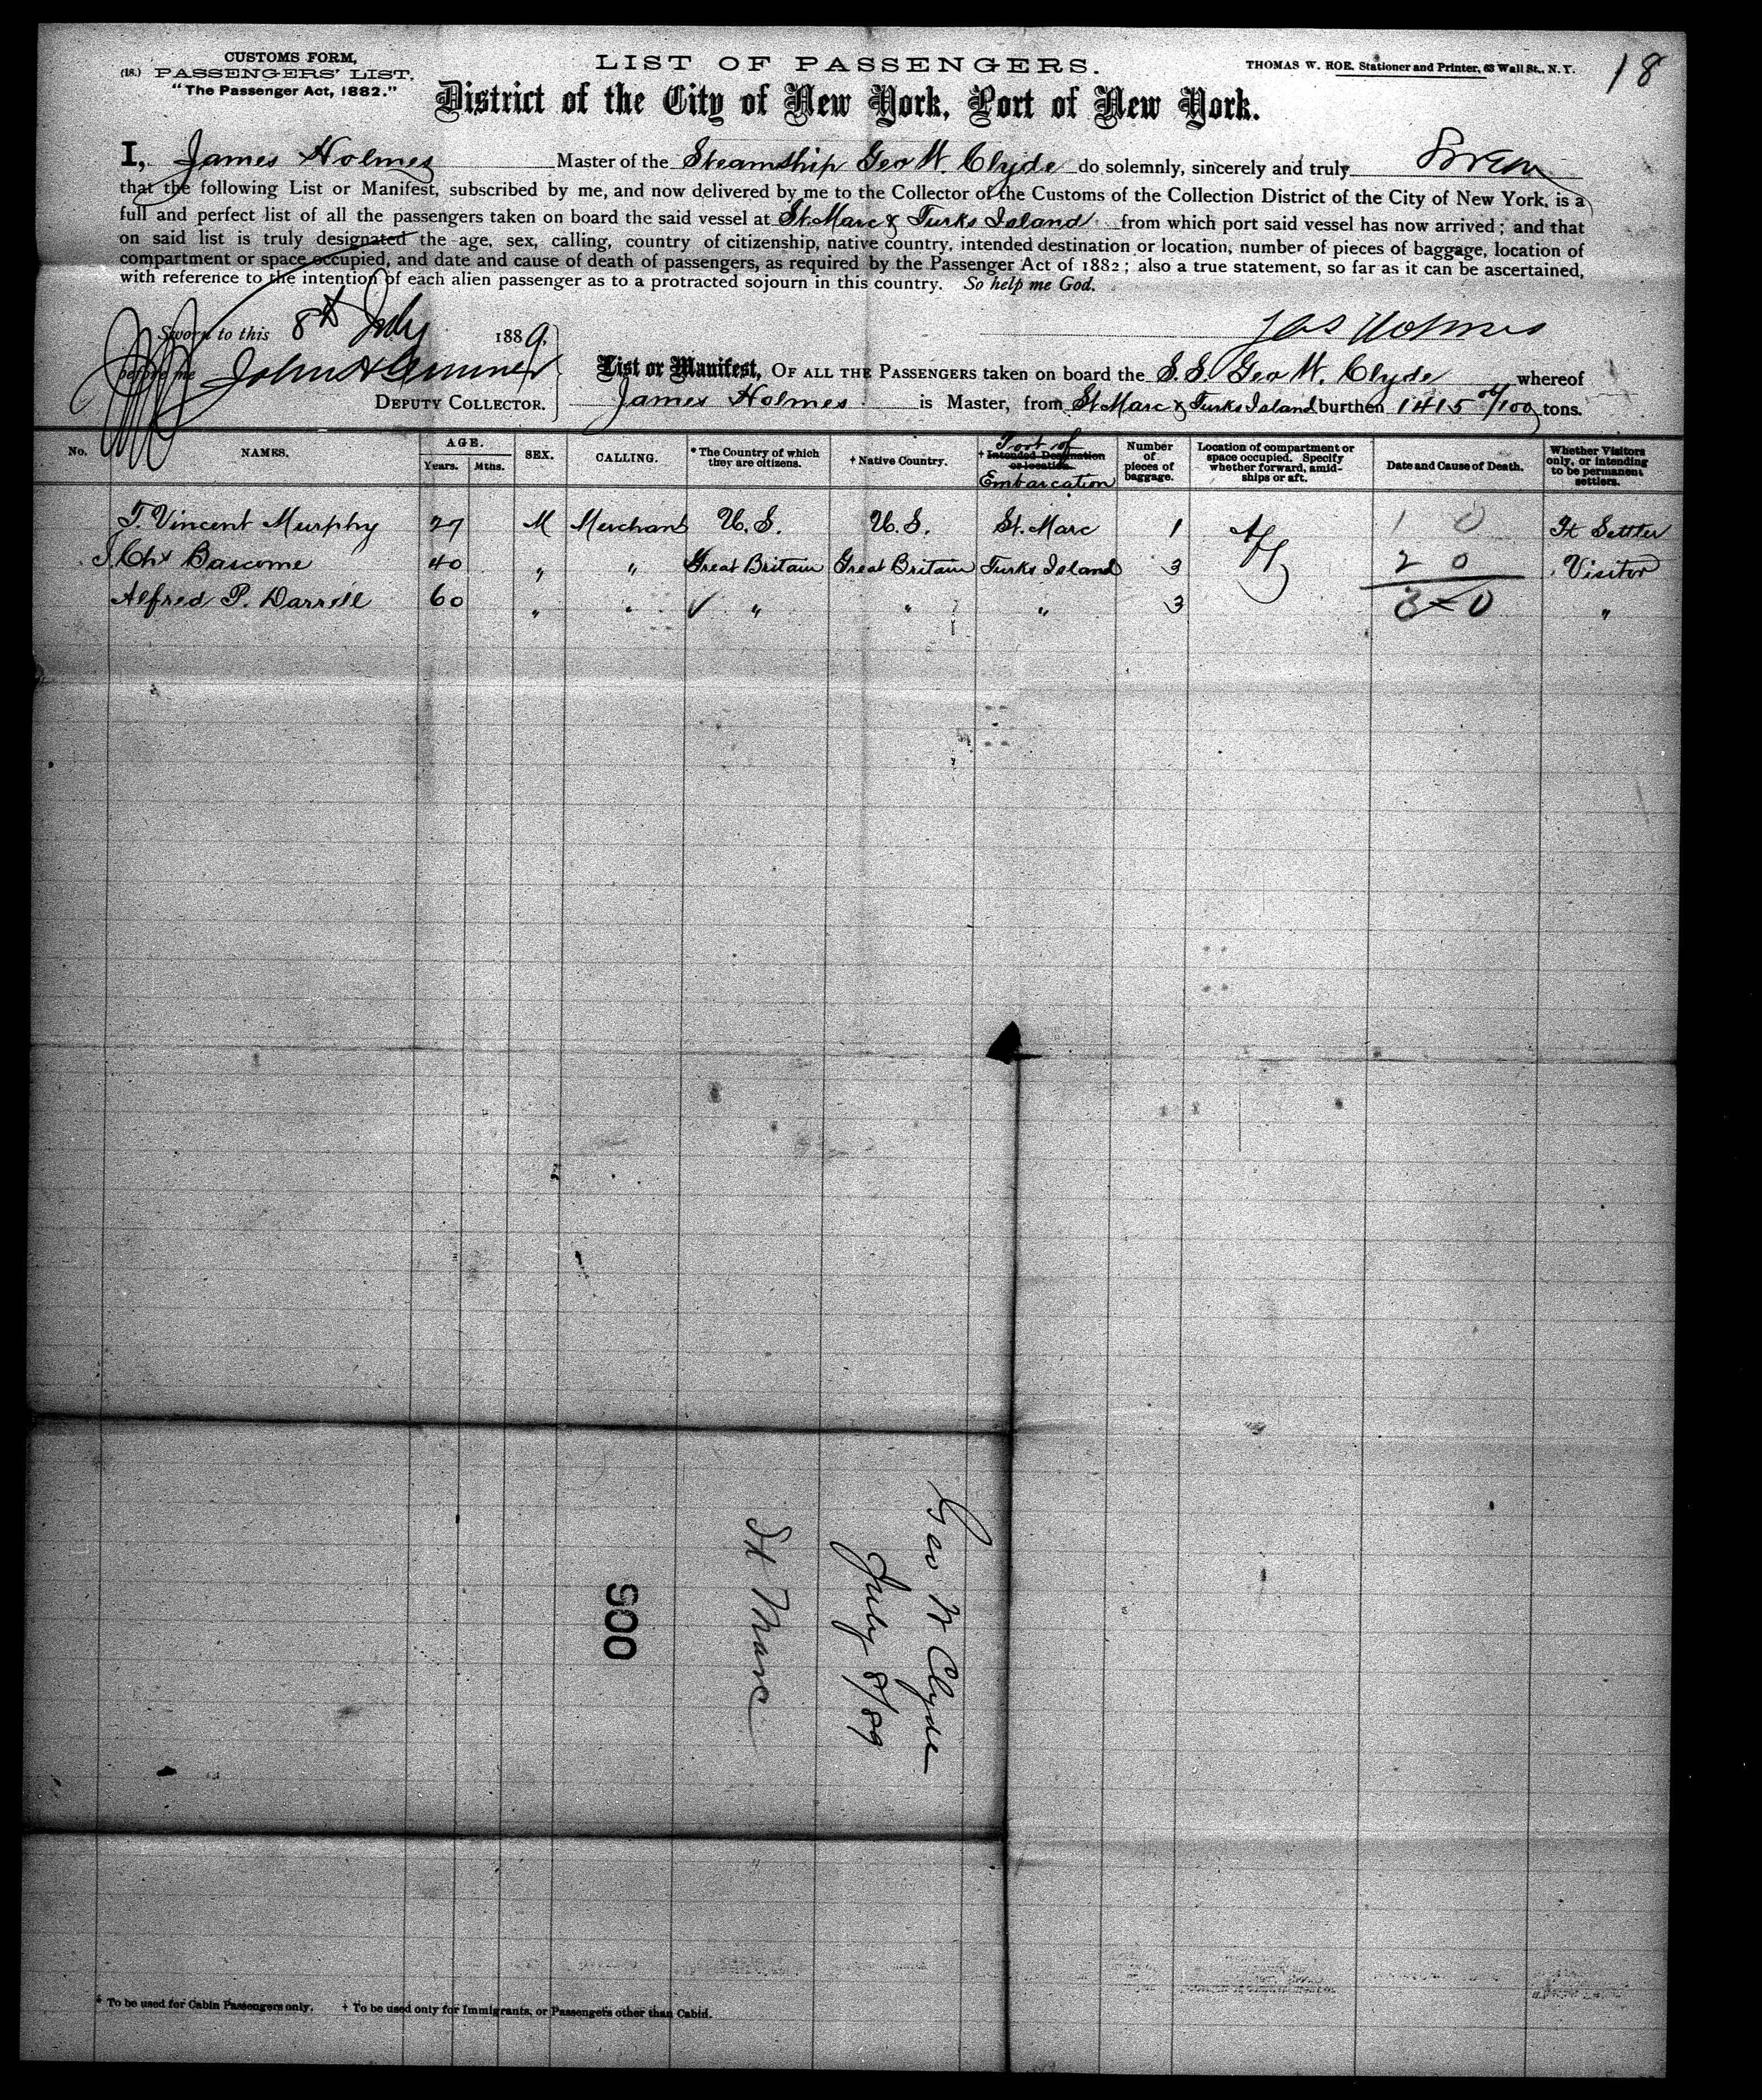 CUSTOMS FORM,
(18.) PASSENGERS' LIST.
"The Passenger Act, 1882."
LIST OF PASSENGERS.
THOMAS W. ROE, Stationer and Printer, 63 Wall St., N. Y.
18
District of the City of New York, Port of New York.
I, James Holmes Master of the Steamship Geo W. Clyde do solemnly, sincerely and truly Swear
that the following List or Manifest, subscribed by me, and now delivered by me to the Collector of the Customs of the Collection District of the City of New York, is a
full and perfect list of all the passengers taken on board the said vessel at St. Marc & Turks Island from which port said vessel has now arrived; and that
on said list is truly designated the age, sex, calling, country of citizenship, native country, intended destination or location, number of pieces of baggage, location of
compartment or space occupied, and date and cause of death of passengers, as required by the Passenger Act of 1882; also a true statement, so far as it can be ascertained,
with reference to the intention of each alien passenger as to a protracted sojourn in this country. So help me God.
Sworn to this 8th July 1889,
Jas Holmes
before me John
DEPUTY COLLECTOR.
List or Manifest, OF ALL THE PASSENGERS taken on board the S.S. Geo W. Clyde whereof
James Holmes is Master, from St Marc & Turks Island burthen 1415 /100 tons.
No. NAMES. AGE. Years. Mths. SEX. CALLING. * The Country of which they are citizens. † Native Country. † Intended Destination or location. Port of Embarcation Number of pieces of baggage. Location of compartment or space occupied. Specify whether forward, amidships or aft. Date and Cause of Death. Whether Visitors only, or intending to be permanent settlers.
T. Vincent Murphy 27 M Merchant U.S. U.S. St. Marc 1 Aft 1 0 Settler
Bascome 40 " " Great Britain Great Britain Turks Island 3 2 0 Visitor
Alfred P. Darrell 60 " " ✓ " " " 3 3 0 "
Geo W Clyde
July 8/89
St Marc
906
* To be used for Cabin Passengers only. † To be used only for Immigrants, or Passengers other than Cabin.